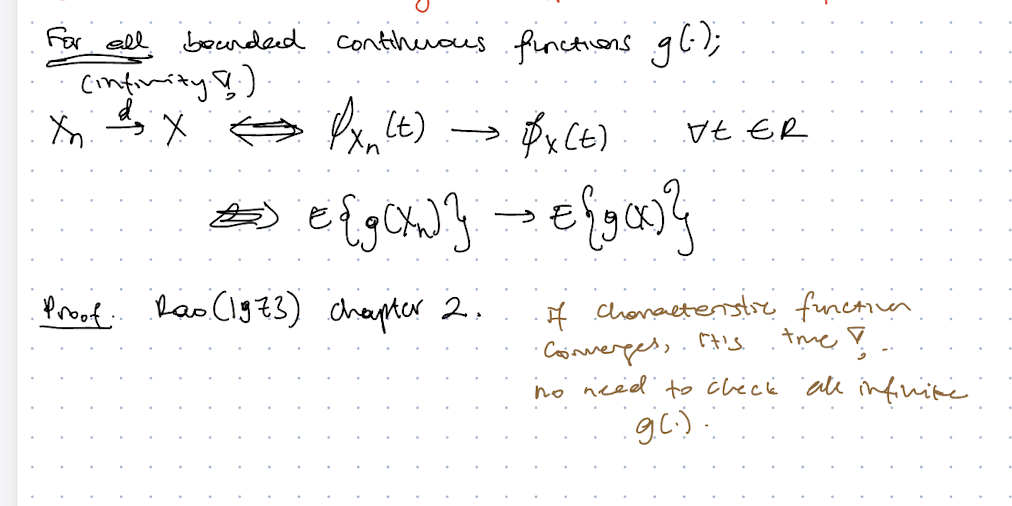 For all bounded continuous functions g(·);
(infinity!)
Xn →d X ⟺ ϕXn(t) → ϕX(t) ∀t ∈ R
⟺ E{g(Xn)} → E{g(X)}
Proof. Rao (1973) chapter 2.
If characteristic function
converges, it is true!
no need to check all infinite
g(·).